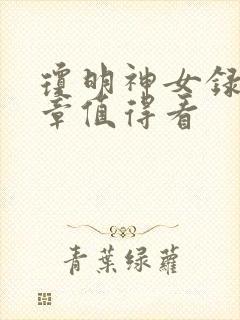 瓊明神女録
章值得看
青葉绿蘿